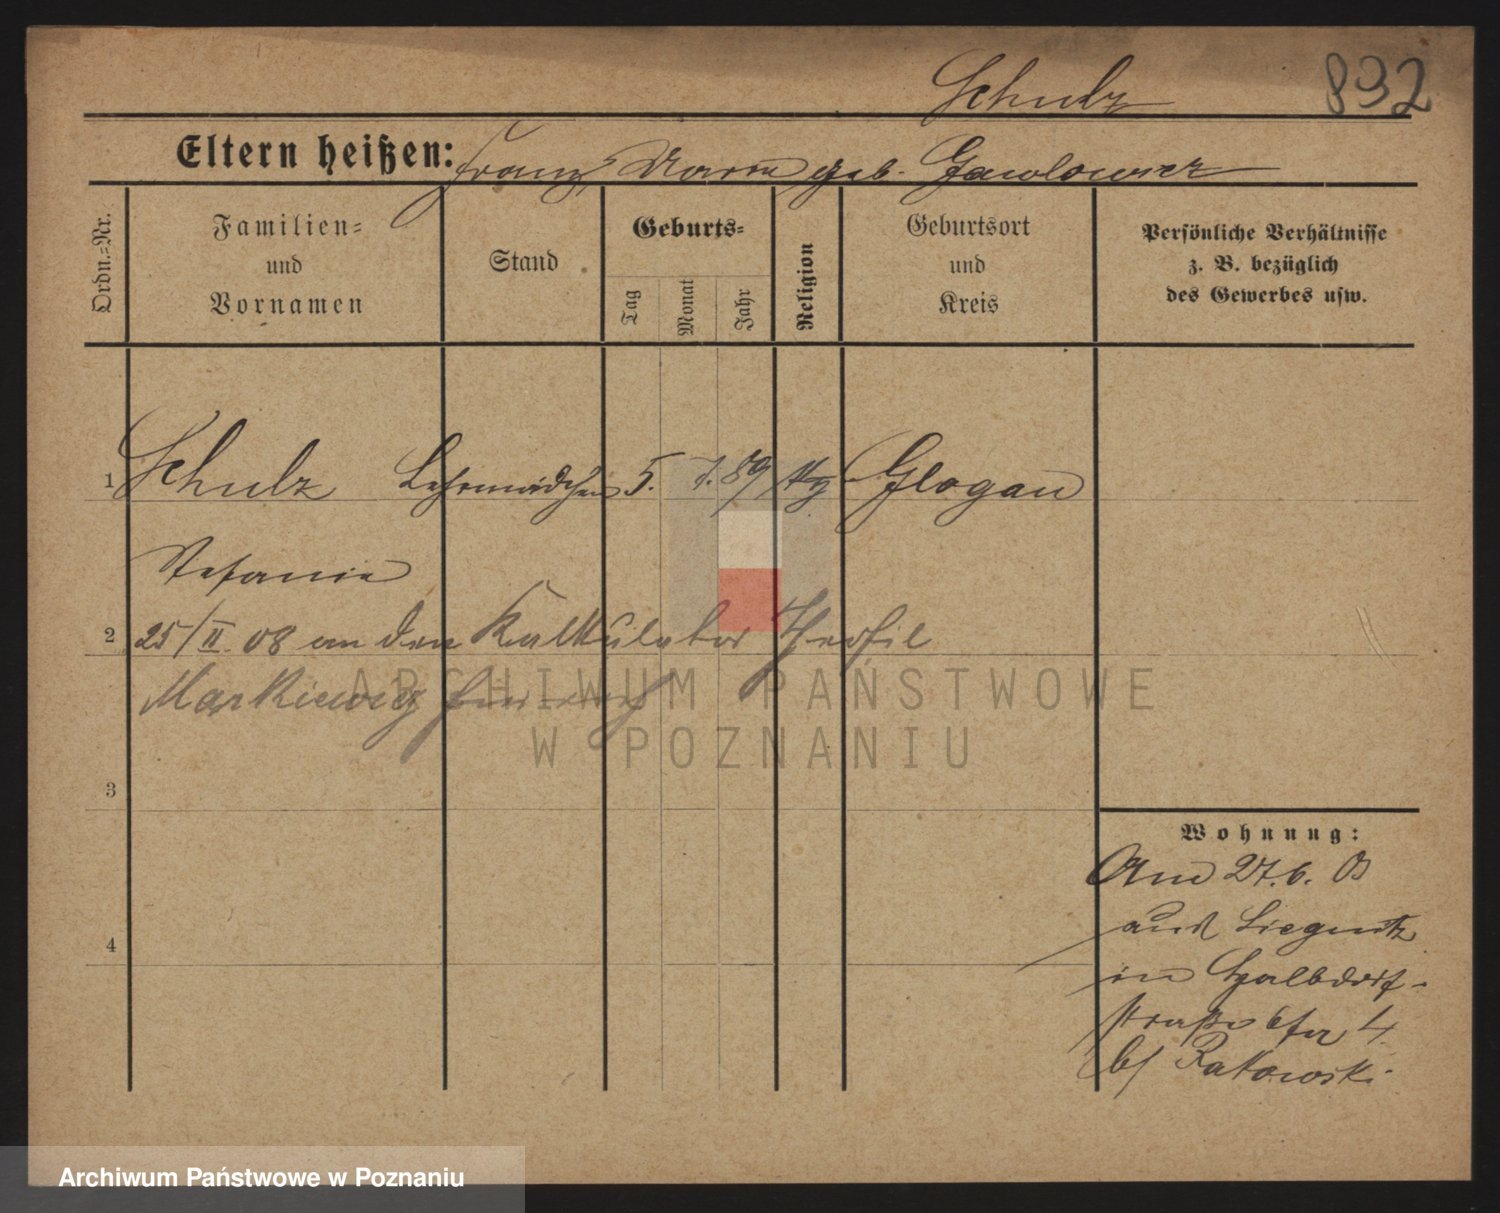 Schulz 892
Eltern heißen: Franz, Marie geb. Gawlowicz
Ordn.-Nr.
Familien-
und
Vornamen
Stand
Geburts-
Tag
Monat
Jahr
Religion
Geburtsort
und
Kreis
Persönliche Verhältnisse
z. B. bezüglich
des Gewerbes usw.
1 Schulz Lehrmädchen 5. 7. 89 Glogau
Stefanie
2 25/II 08 an den Kalkulator Theofil
Markiewicz
3
4
Wohnung:
Am 27.6.
aus Liegnitz
in
straße 4
b/ Ratowski
ARCHIWUM PAŃSTWOWE
W POZNANIU
Archiwum Państwowe w Poznaniu